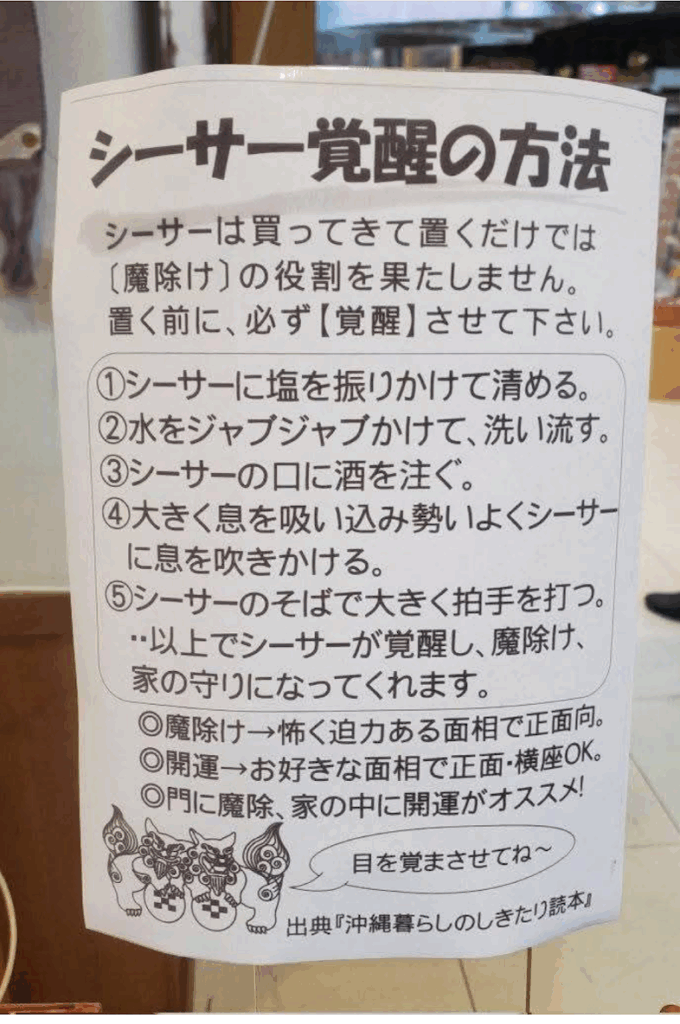 シーサー覚醒の方法
シーサーは買ってきて置くだけでは
〔魔除け〕の役割を果たしません。
置く前に、必ず【覚醒】させて下さい。
①シーサーに塩を振りかけて清める。
②水をジャブジャブかけて、洗い流す。
③シーサーの口に酒を注ぐ。
④大きく息を吸い込み勢いよくシーサー
に息を吹きかける。
⑤シーサーのそばで大きく拍手を打つ。
‥以上でシーサーが覚醒し、魔除け、
家の守りになってくれます。
◎魔除け→怖く迫力ある面相で正面向。
◎開運→お好きな面相で正面・横座OK。
◎門に魔除、家の中に開運がオススメ!
目を覚まさせてね~
出典『沖縄暮らしのしきたり読本』